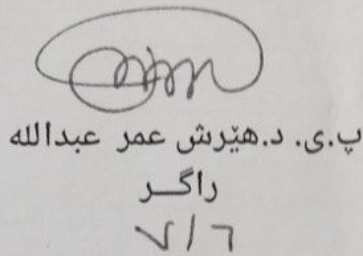 پ.ی. د.هێرش عمر عبدالله
راگر
٧/٦